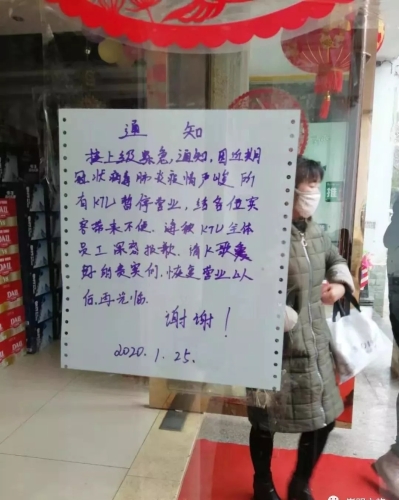 通 知
接上级紧急通知,因近期
冠状病毒肺炎疫情严峻所
有KTV暂停营业,给各位宾
客带来不便。海领KTV全体
员工深表报歉,请K歌
好的贵宾们,恢复营业以
后再光临.
谢谢!
2020.1.25.
DALI
DALI